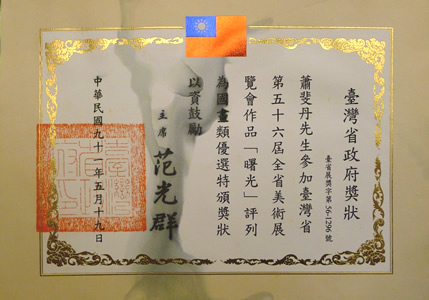 臺灣省政府獎狀
臺省展獎字第56-1296號
蕭斐丹先生參加臺灣省
第五十六屆全省美術展
覽會作品「曙光」評列
為國畫類優選特頒獎狀
以資鼓勵
主席 范光群
中華民國九十一年五月十九日